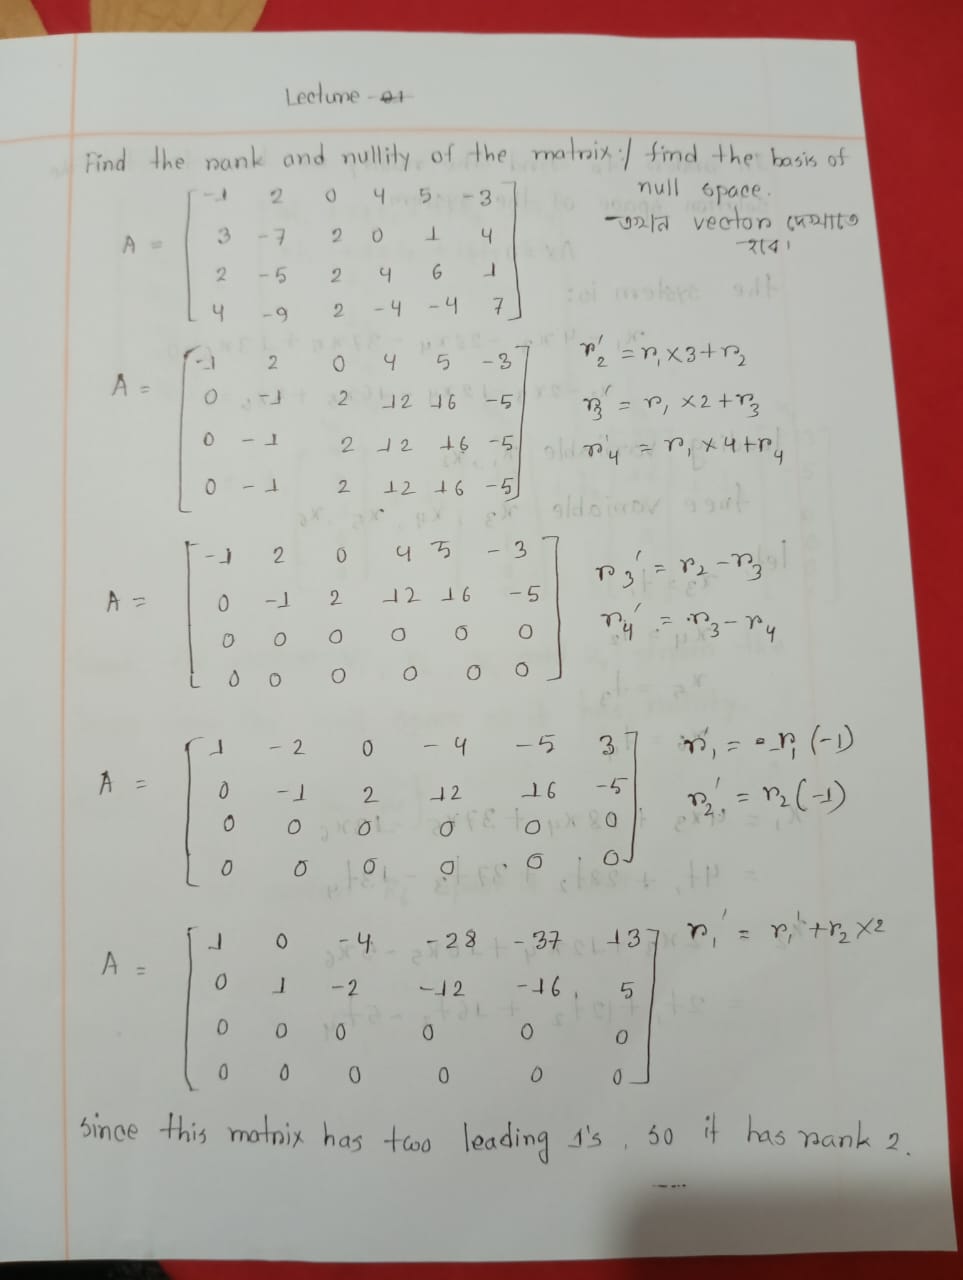 Lecture - 01
Find the rank and nullity of the matrix:/ find the basis of
null space.
তখন vector দেখাতে
হবে।
A = [ -1 2 0 4 5 -3
3 -7 2 0 1 4
2 -5 2 4 6 1
4 -9 2 -4 -4 7 ]
A = [ -1 2 0 4 5 -3
0 -1 2 12 16 -5
0 -1 2 12 16 -5
0 -1 2 12 16 -5 ]
r₂′ = r₁ × 3 + r₂
r₃′ = r₁ × 2 + r₃
r₄′ = r₁ × 4 + r₄
A = [ -1 2 0 4 5 -3
0 -1 2 12 16 -5
0 0 0 0 0 0
0 0 0 0 0 0 ]
r₃′ = r₂ - r₃
r₄′ = r₃ - r₄
A = [ 1 -2 0 -4 -5 3
0 -1 2 12 16 -5
0 0 0 0 0 0
0 0 0 0 0 0 ]
r₁′ = r₁ (-1)
r₂′ = r₂ (-1)
A = [ 1 0 -4 -28 -37 13
0 1 -2 -12 -16 5
0 0 0 0 0 0
0 0 0 0 0 0 ]
r₁′ = r₁′ + r₂ × 2
Since this matrix has two leading 1's, so it has rank 2.